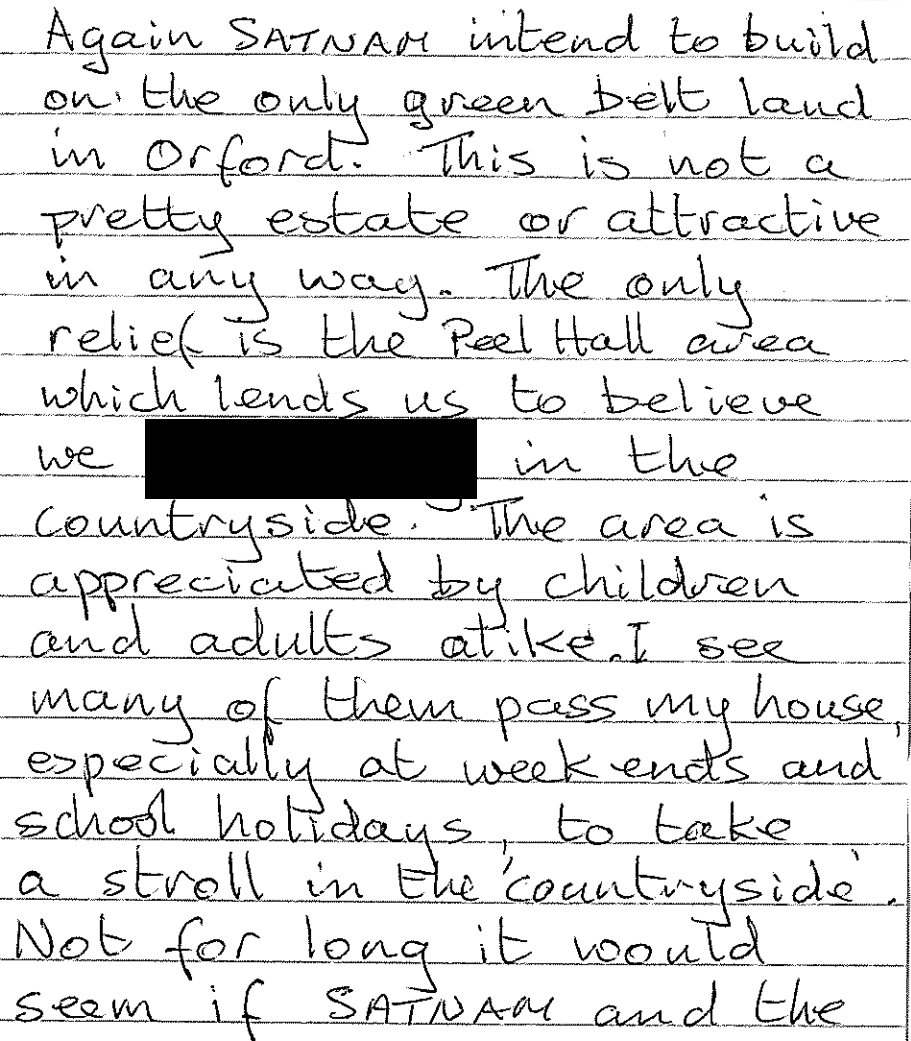 Again SATNAM intend to build
on the only green belt land
in Orford. This is not a
pretty estate or attractive
in any way. The only
relief is the Peel Hall area
which lends us to believe
we in the
countryside. The area is
appreciated by children
and adults alike. I see
many of them pass my house,
especially at weekends and
school holidays, to take
a stroll in the 'countryside'.
Not for long it would
seem if SATNAM and the